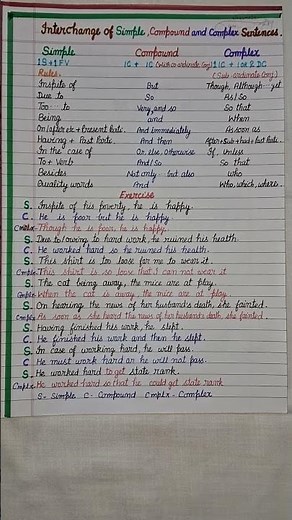 Interchange of Simple, Compound and Complex Sentences.
Simple Compound Complex
1S + 1FV 1C + 1C (with co-ordinate Conj) 1IC + 1 or 2 DC
Rules. (Sub-ordinate Conj)
Inspite of But Though, Although yet
Due to So As/So
Too to Very, and so So that
Being and When
On/after etc + Present Parte. And immediately As soon as
Having + Past Parte. And then After + Sub + had + Past Parte.
In the case of Or else, otherwise If, unless
To + Verb And/So So that
Besides Not only but also who
Quality words And Who, which, where.
Exercise
S. Inspite of his poverty, he is happy.
C. He is poor but he is happy.
Cmplx- Though he is poor, he is happy.
S. Due to/owing to hard work, he ruined his health.
C. He worked hard so he ruined his health.
S. This shirt is too loose for me to wear it.
Cmplx- This shirt is so loose that I can not wear it
S. The cat being away, the mice are at play.
Cmplx- When the cat is away, the mice are at play.
S. On hearing the news of her husbands death, she fainted.
Cmplx As soon as she heard the news of her husbands death she fainted.
S. Having finished his work, he slept.
C. He finished his work and then he slept.
S. In case of working hard, he will pass.
C. He must work hard or he will not pass.
S. He worked hard to get state rank.
Cmplx- He worked hard so that he could get state rank
S- Simple C- Compound Cmplx- Complex